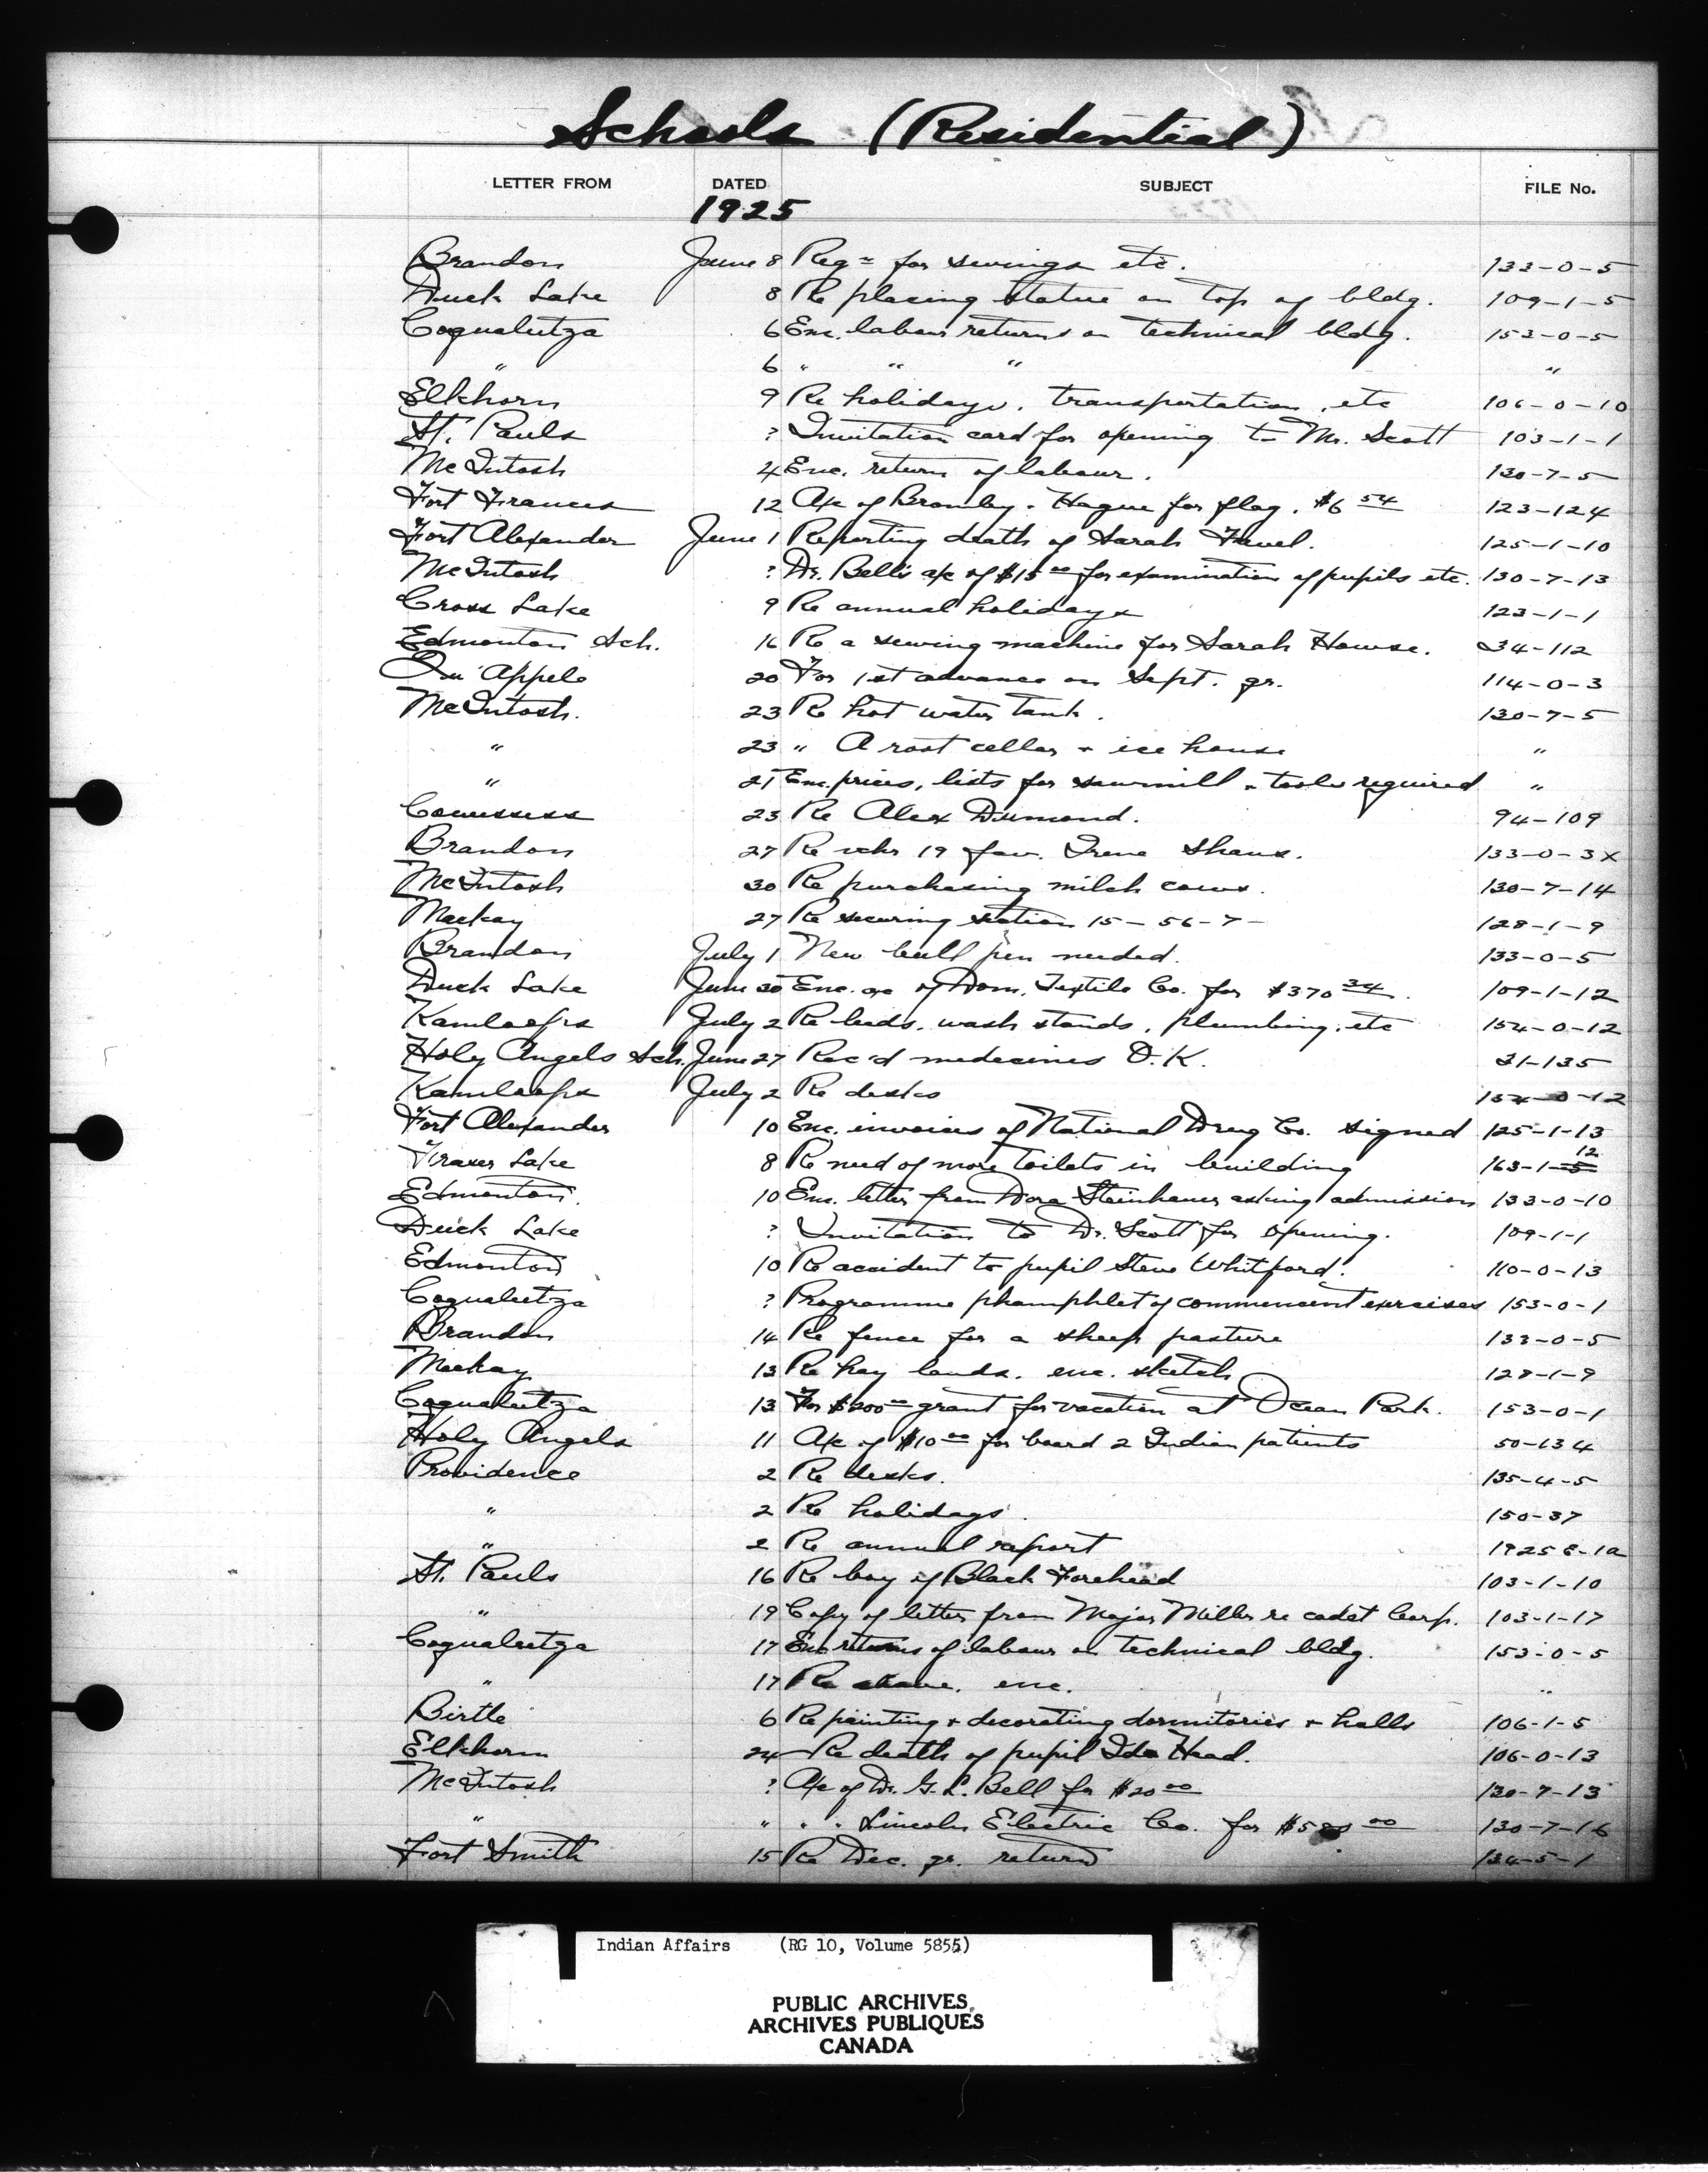 Schools (Residential)
LETTER FROM DATED SUBJECT FILE No.
1925
Brandon June 8 Reqn for sewings etc. 133-0-5
Duck Lake 8 Re placing statue on top of bldg. 109-1-5
Coqualeetza 6 Enc. labour returns on technical bldg. 153-0-5
" 6 " " " "
Elkhorn 9 Re holidays, transportation, etc 106-0-10
St. Pauls ? Invitation card for opening to Mr. Scott 103-1-1
McIntosh 4 Enc. return of labour. 130-7-5
Fort Frances 12 A/c of Bromley & Hague for flag. $6 54 123-124
Fort Alexander June 1 Reporting death of Sarah Favel. 125-1-10
McIntosh ? Dr. Bell's a/c of $15 00 for examination of pupils etc. 130-7-13
Cross Lake 9 Re annual holidays 123-1-1
Edmonton Sch. 16 Re a sewing machine for Sarah Howse. 34-112
Qu'Appele 20 For 1st advance on Sept. qr. 114-0-3
McIntosh. 23 Re hot water tank. 130-7-5
" 23 " A root cellar & ice house "
" 21 Enc. prices, lists for sawmill & tools required "
Cowessess 23 Re Alex Dumond. 94-109
Brandon 27 Re vchr 19 fav. Irene Shaux. 133-0-3x
McIntosh 30 Re purchasing milch cows. 130-7-14
Mackay 27 Re securing section 15-56-7- 128-1-9
Brandon July 1 New bull pen needed. 133-0-5
Duck Lake June 30 Enc. a/c of Dom. Textile Co. for $370 34. 109-1-12
Kamloops July 2 Re beds, wash stands, plumbing, etc 154-0-12
Holy Angels Sch. June 27 Rec'd medecines O.K. 31-135
Kamloops July 2 Re desks 154-0-12
Fort Alexander 10 Enc. invoices of National Drug Co. signed 125-1-13
Fraser Lake 8 Re need of more toilets in building 163-1-5 12
Edmonton. 10 Enc. letter from Dora Steinhauer asking admission 133-0-10
Duck Lake ? Invitation to Dr. Scott for opening. 109-1-1
Edmonton 10 Re accident to pupil Steve Whitford. 110-0-13
Coqualeetza ? Programme phamphlet of commencent exercises 153-0-1
Brandon 14 Re fence for a sheep pasture 133-0-5
Mackay 13 Re hay lands. enc. sketch 128-1-9
Coqualeetza 13 For $200 00 grant for vacation at Ocean Park. 153-0-1
Holy Angels 11 A/c of $10 00 for board 2 Indian patients 50-134
Providence 2 Re desks. 135-4-5
" 2 Re holidays. 150-37
" 2 Re annual report 1925 E-1a
St. Pauls 16 Re boy of Black Forehead 103-1-10
" 19 Copy of letter from Major Miller re cadet Corp. 103-1-17
Coqualeetza 17 Enc returns of labour on technical bldg. 153-0-5
" 17 Re above. enc. "
Birtle 6 Re painting & decorating dormitories & halls 106-1-5
Elkhorn 24 Re death of pupil Ida Head. 106-0-13
McIntosh ? A/c of Dr. G. L. Bell for $20 00 130-7-13
" " " " Lincoln Electric Co. for 00 130-7-16
Fort Smith 15 Re Dec. qr. return 134-5-1
Indian Affairs (RG 10, Volume 5855)
PUBLIC ARCHIVES
ARCHIVES PUBLIQUES
CANADA